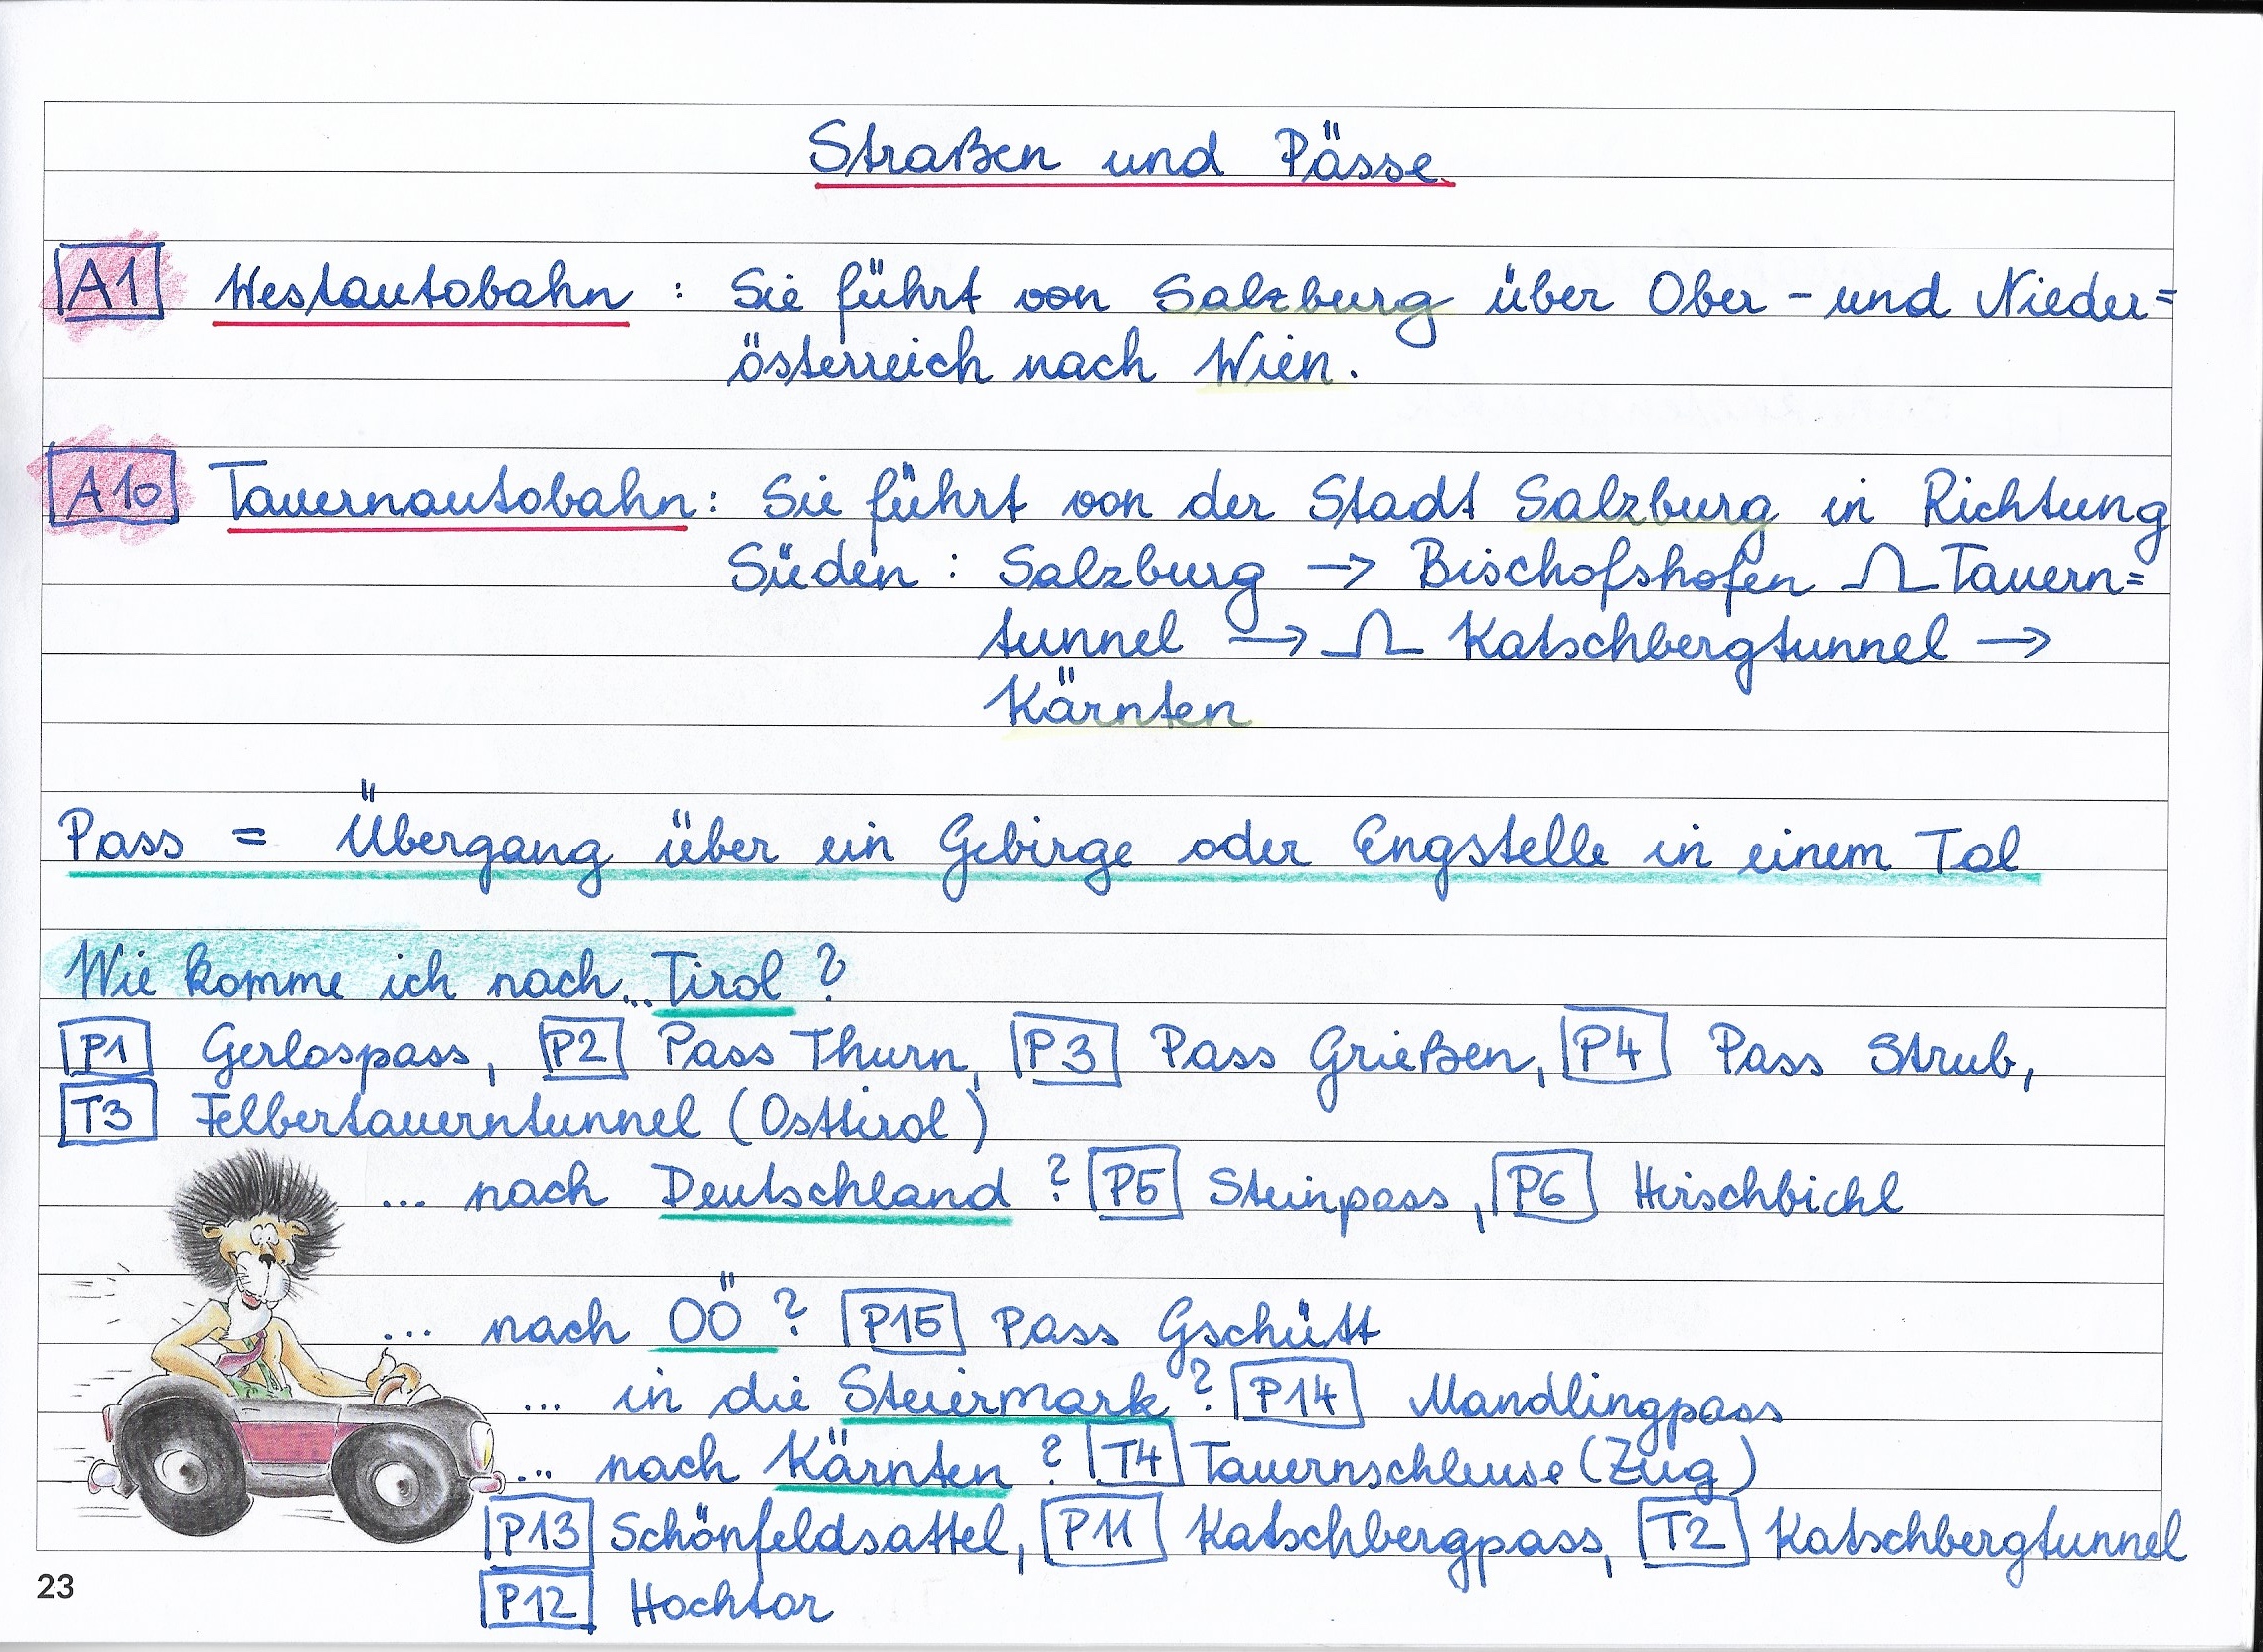 Straßen und Pässe
A1 Westautobahn : Sie führt von Salzburg über Ober - und Nieder=
österreich nach Wien.
A10 Tauernautobahn : Sie führt von der Stadt Salzburg in Richtung
Süden : Salzburg → Bischofshofen Tauern=
tunnel → Katschbergtunnel →
Kärnten
Pass = Übergang über ein Gebirge oder Engstelle in einem Tal
Wie komme ich nach... Tirol ?
P1 Gerlospass, P2 Pass Thurn, P3 Pass Grießen, P4 Pass Strub,
T3 Felbertauerntunnel (Osttirol)
... nach Deutschland ? P5 Steinpass, P6 Hirschbichl
... nach OÖ ? P15 Pass Gschütt
... in die Steiermark ? P14 Mandlingpass
... nach Kärnten ? T4 Tauernschleuse (Zug)
P13 Schönfeldsattel, P11 Katschbergpass, T2 Katschbergtunnel
P12 Hochtor
23